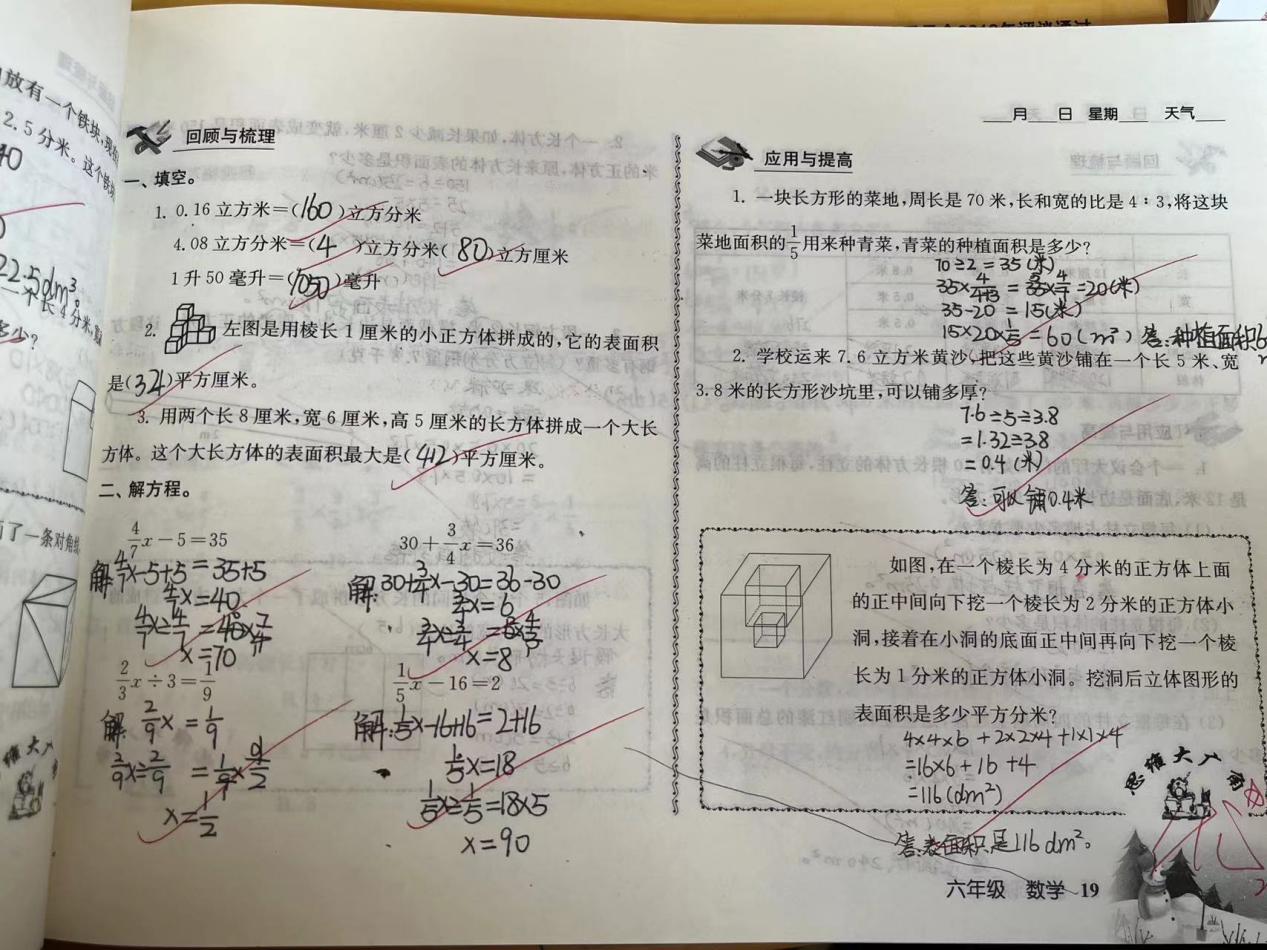 放有一个铁块,现
2.5分米。这个铁
22.5dm³。
长4分米,宽
多少?
了一条对角线
月 日 星期 天气
回顾与梳理
一、填空。
1. 0.16立方米=(160)立方分米
4.08立方分米=(4)立方分米(80)立方厘米
1升50毫升=(1050)毫升
2. 左图是用棱长1厘米的小正方体拼成的,它的表面积
是(34)平方厘米。
3. 用两个长8厘米,宽6厘米,高5厘米的长方体拼成一个大长
方体。这个大长方体的表面积最大是(412)平方厘米。
二、解方程。
4/7x-5=35
解:4/7x-5+5=35+5
4/7x=40
4/7x÷4/7=40×7/4
x=70
30+3/4x=36
解:30+3/4x-30=36-30
3/4x=6
3/4x÷3/4=6×4/3
x=8
2/3x÷3=1/9
解:2/9x=1/9
2/9x÷2/9=1/9×9/2
x=1/2
1/5x-16=2
解:1/5x-16+16=2+16
1/5x=18
1/5x÷1/5=18×5
x=90
应用与提高
1. 一块长方形的菜地,周长是70米,长和宽的比是4∶3,将这块
菜地面积的1/5用来种青菜,青菜的种植面积是多少?
70÷2=35(米)
35×4/4+3=35×4/7=20(米)
35-20=15(米)
15×20×1/5=60(m²) 答:种植面积6
2. 学校运来7.6立方米黄沙,把这些黄沙铺在一个长5米、宽
3.8米的长方形沙坑里,可以铺多厚?
7.6÷5÷3.8
=1.32÷3.8
=0.4(米)
答:可以铺0.4米
如图,在一个棱长为4分米的正方体上面
的正中间向下挖一个棱长为2分米的正方体小
洞,接着在小洞的底面正中间再向下挖一个棱
长为1分米的正方体小洞。挖洞后立体图形的
表面积是多少平方分米?
4×4×6+2×2×4+1×1×4
=16×6+16+4
=116(dm²)
答:表面积是116dm²。
思维大
六年级 数学 19